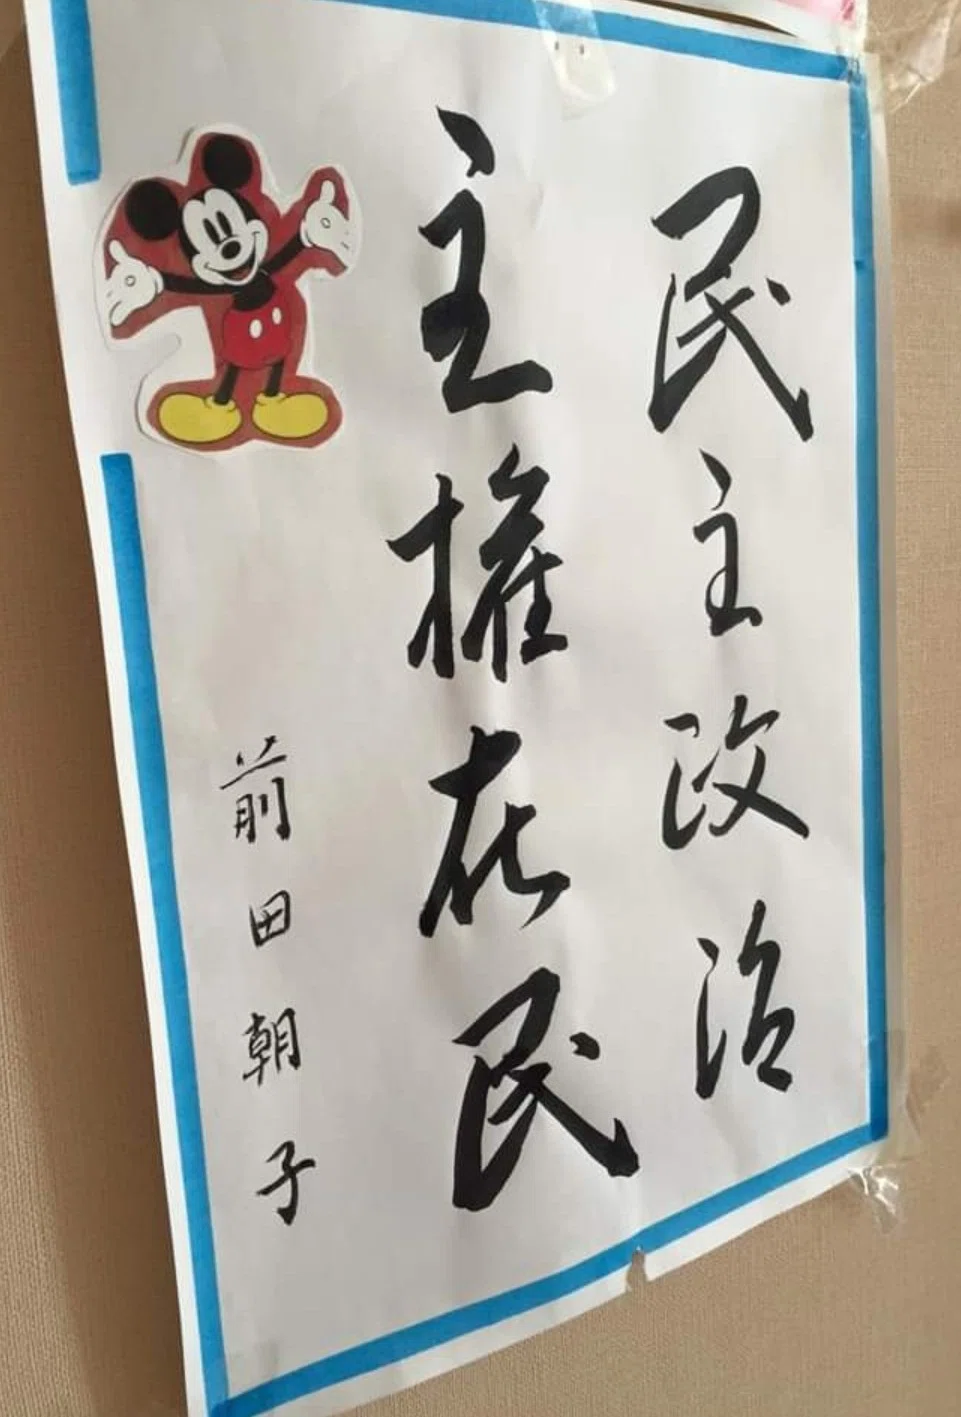 民主政治
主権在民
前田朝子